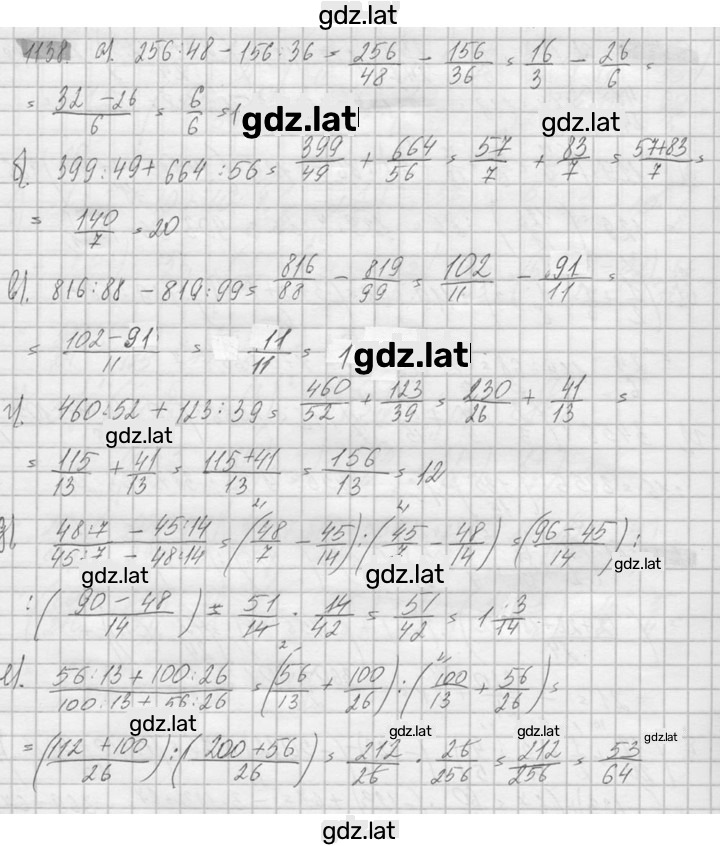 gdz.lat
1138 а). 256:48 - 156:36 = 256/48 - 156/36 = 16/3 - 26/6 =
= (32 - 26)/6 = 6/6 = 1 gdz.lat gdz.lat
б). 399:49 + 664:56 = 399/49 + 664/56 = 57/7 + 83/7 = (57+83)/7 =
= 140/7 = 20
в). 816:88 - 819:99 = 816/88 - 819/99 = 102/11 - 91/11 =
= (102 - 91)/11 = 11/11 = 1 gdz.lat
г). 460:52 + 123:39 = 460/52 + 123/39 = 230/26 + 41/13 =
gdz.lat
= 115/13 + 41/13 = (115+41)/13 = 156/13 = 12
д) (48:7 - 45:14)/(45:7 - 48:14) = (48/7 - 45/14) : (45/7 - 48/14) = ((96 - 45)/14) :
gdz.lat gdz.lat gdz.lat
: ((90 - 48)/14) = 51/14 · 14/42 = 51/42 = 1 3/14
е). (56:13 + 100:26)/(100:13 + 56:26) = (56/13 + 100/26) : (100/13 + 56/26) =
gdz.lat gdz.lat gdz.lat gdz.lat
= ((112 + 100)/26) : ((200 + 56)/26) = 212/26 · 26/256 = 212/256 = 53/64
gdz.lat